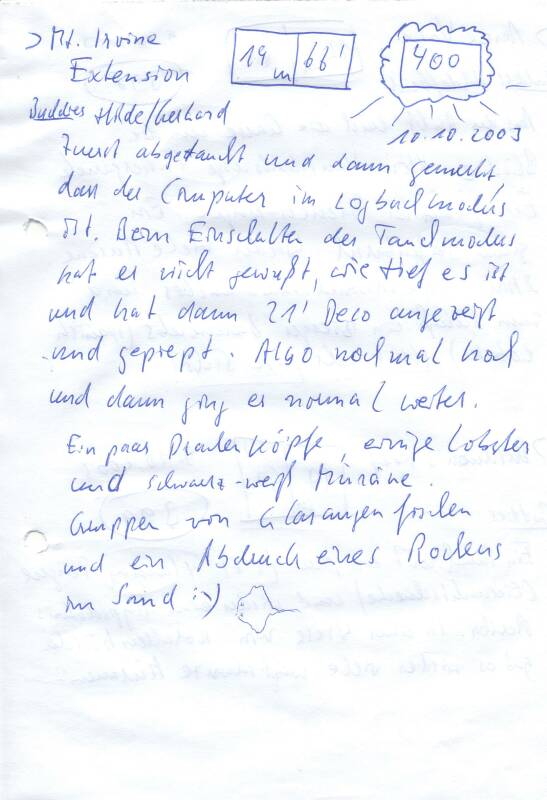 > Mt. Irvine
Extension
19 m 66'
400
Buddies Hilde/Gerhard
10.10.2003
Zuerst abgetaucht und dann gemerkt,
daß der Computer im Logbuchmodus
ist. Beim Einschalten des Tauchmodus
hat er nicht gewußt, wie tief es ist
und hat dann 21' Deco angezeigt
und gepiept. Also nochmal hoch
und dann ging es normal weiter.
Ein paar Drachenköpfe, einige Lobster
und schwarz-weiß Muräne.
Gruppen von Glasaugenfischen
und ein Abdruck eines Rochens
im Sand :-)